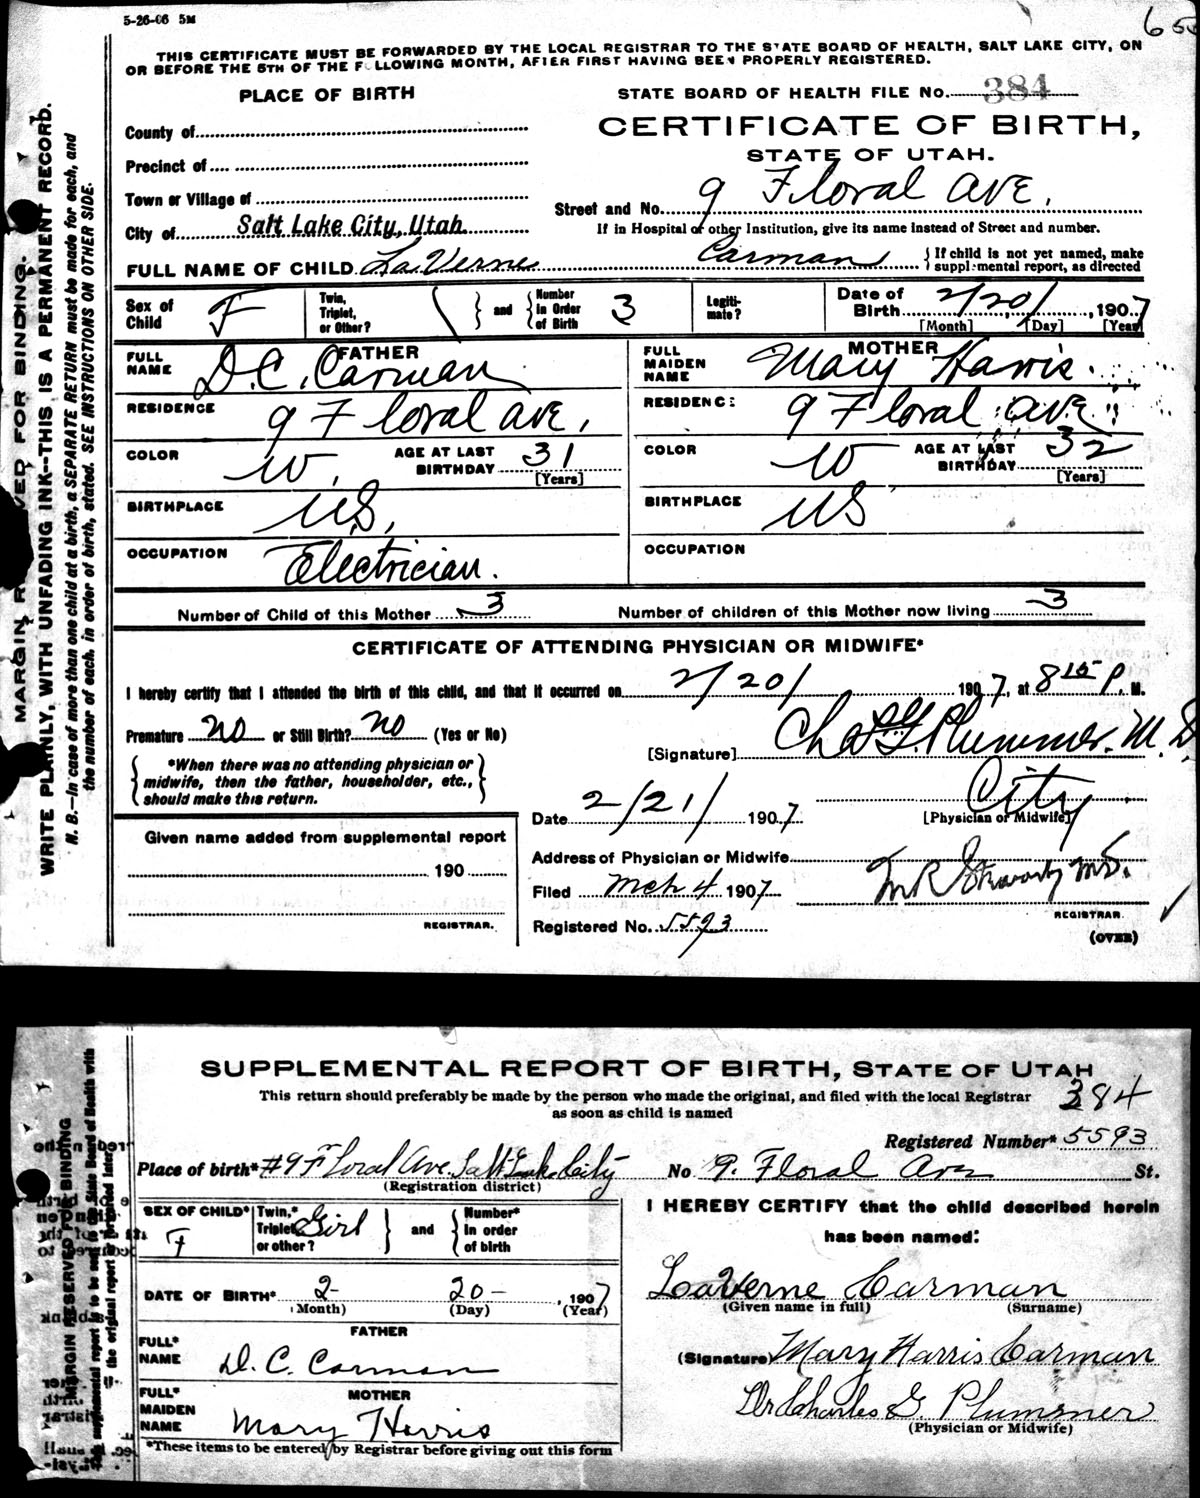 5-26-06 5M
65
THIS CERTIFICATE MUST BE FORWARDED BY THE LOCAL REGISTRAR TO THE STATE BOARD OF HEALTH, SALT LAKE CITY, ON
OR BEFORE THE 5TH OF THE FOLLOWING MONTH, AFTER FIRST HAVING BEEN PROPERLY REGISTERED.
PLACE OF BIRTH
STATE BOARD OF HEALTH FILE No. 384
County of
CERTIFICATE OF BIRTH,
Precinct of
STATE OF UTAH.
Town or Village of
Street and No. 9 Floral Ave.
City of Salt Lake City, Utah
If in Hospital or other Institution, give its name instead of Street and number.
FULL NAME OF CHILD La Verne Carman
If child is not yet named, make
supplemental report, as directed
Sex of
Child F
Twin,
Triplet,
or Other?
and
Number
in Order
of Birth 3
Legiti-
mate?
Date of
Birth 2/20/, 1907
[Month] [Day] [Year]
FULL
NAME
FATHER
D. C. Carman
FULL
MAIDEN
NAME
MOTHER
Mary Harris
RESIDENCE 9 Floral ave,
RESIDENCE 9 Floral ave.
COLOR W.
AGE AT LAST
BIRTHDAY 31
[Years]
COLOR W
AGE AT LAST
BIRTHDAY 32
[Years]
BIRTHPLACE U.S.
BIRTHPLACE US
OCCUPATION Electrician.
OCCUPATION
Number of Child of this Mother 3
Number of children of this Mother now living 3
CERTIFICATE OF ATTENDING PHYSICIAN OR MIDWIFE*
I hereby certify that I attended the birth of this child, and that it occurred on 2/20/ 1907, at 8 15 P. M.
Premature no or Still Birth? no (Yes or No)
[Signature] Chas G. Plummer. M. D
*When there was no attending physician or
midwife, then the father, householder, etc.,
should make this return.
City
[Physician or Midwife]
Date 2/21/ 1907
Given name added from supplemental report
190
REGISTRAR.
Address of Physician or Midwife
Filed Mch 4 1907
REGISTRAR
Registered No. 5593
(OVER)
MARGIN RESERVED FOR BINDING.
WRITE PLAINLY, WITH UNFADING INK--THIS IS A PERMANENT RECORD.
N. B.—In case of more than one child at a birth, a SEPARATE RETURN must be made for each, and
the number of each, in order of birth, stated. SEE INSTRUCTIONS ON OTHER SIDE.
SUPPLEMENTAL REPORT OF BIRTH, STATE OF UTAH
This return should preferably be made by the person who made the original, and filed with the local Registrar
as soon as child is named
384
Registered Number* 5593
Place of birth* #9 Floral Ave. Salt Lake City No 9. Floral Ave St.
(Registration district)
SEX OF CHILD*
F
Twin,*
Triplet
or other?
Girl
and
Number*
in order
of birth
I HEREBY CERTIFY that the child described herein
has been named:
DATE OF BIRTH* 2- 20- , 1907
(Month) (Day) (Year)
LaVerne Carman
(Given name in full) (Surname)
FATHER
FULL*
NAME D. C. Carman
(Signature) Mary Harris Carman
MOTHER
FULL*
MAIDEN
NAME Mary Harris
Dr Charles G. Plummer
(Physician or Midwife)
*These items to be entered by Registrar before giving out this form
MARGIN RESERVED FOR BINDING